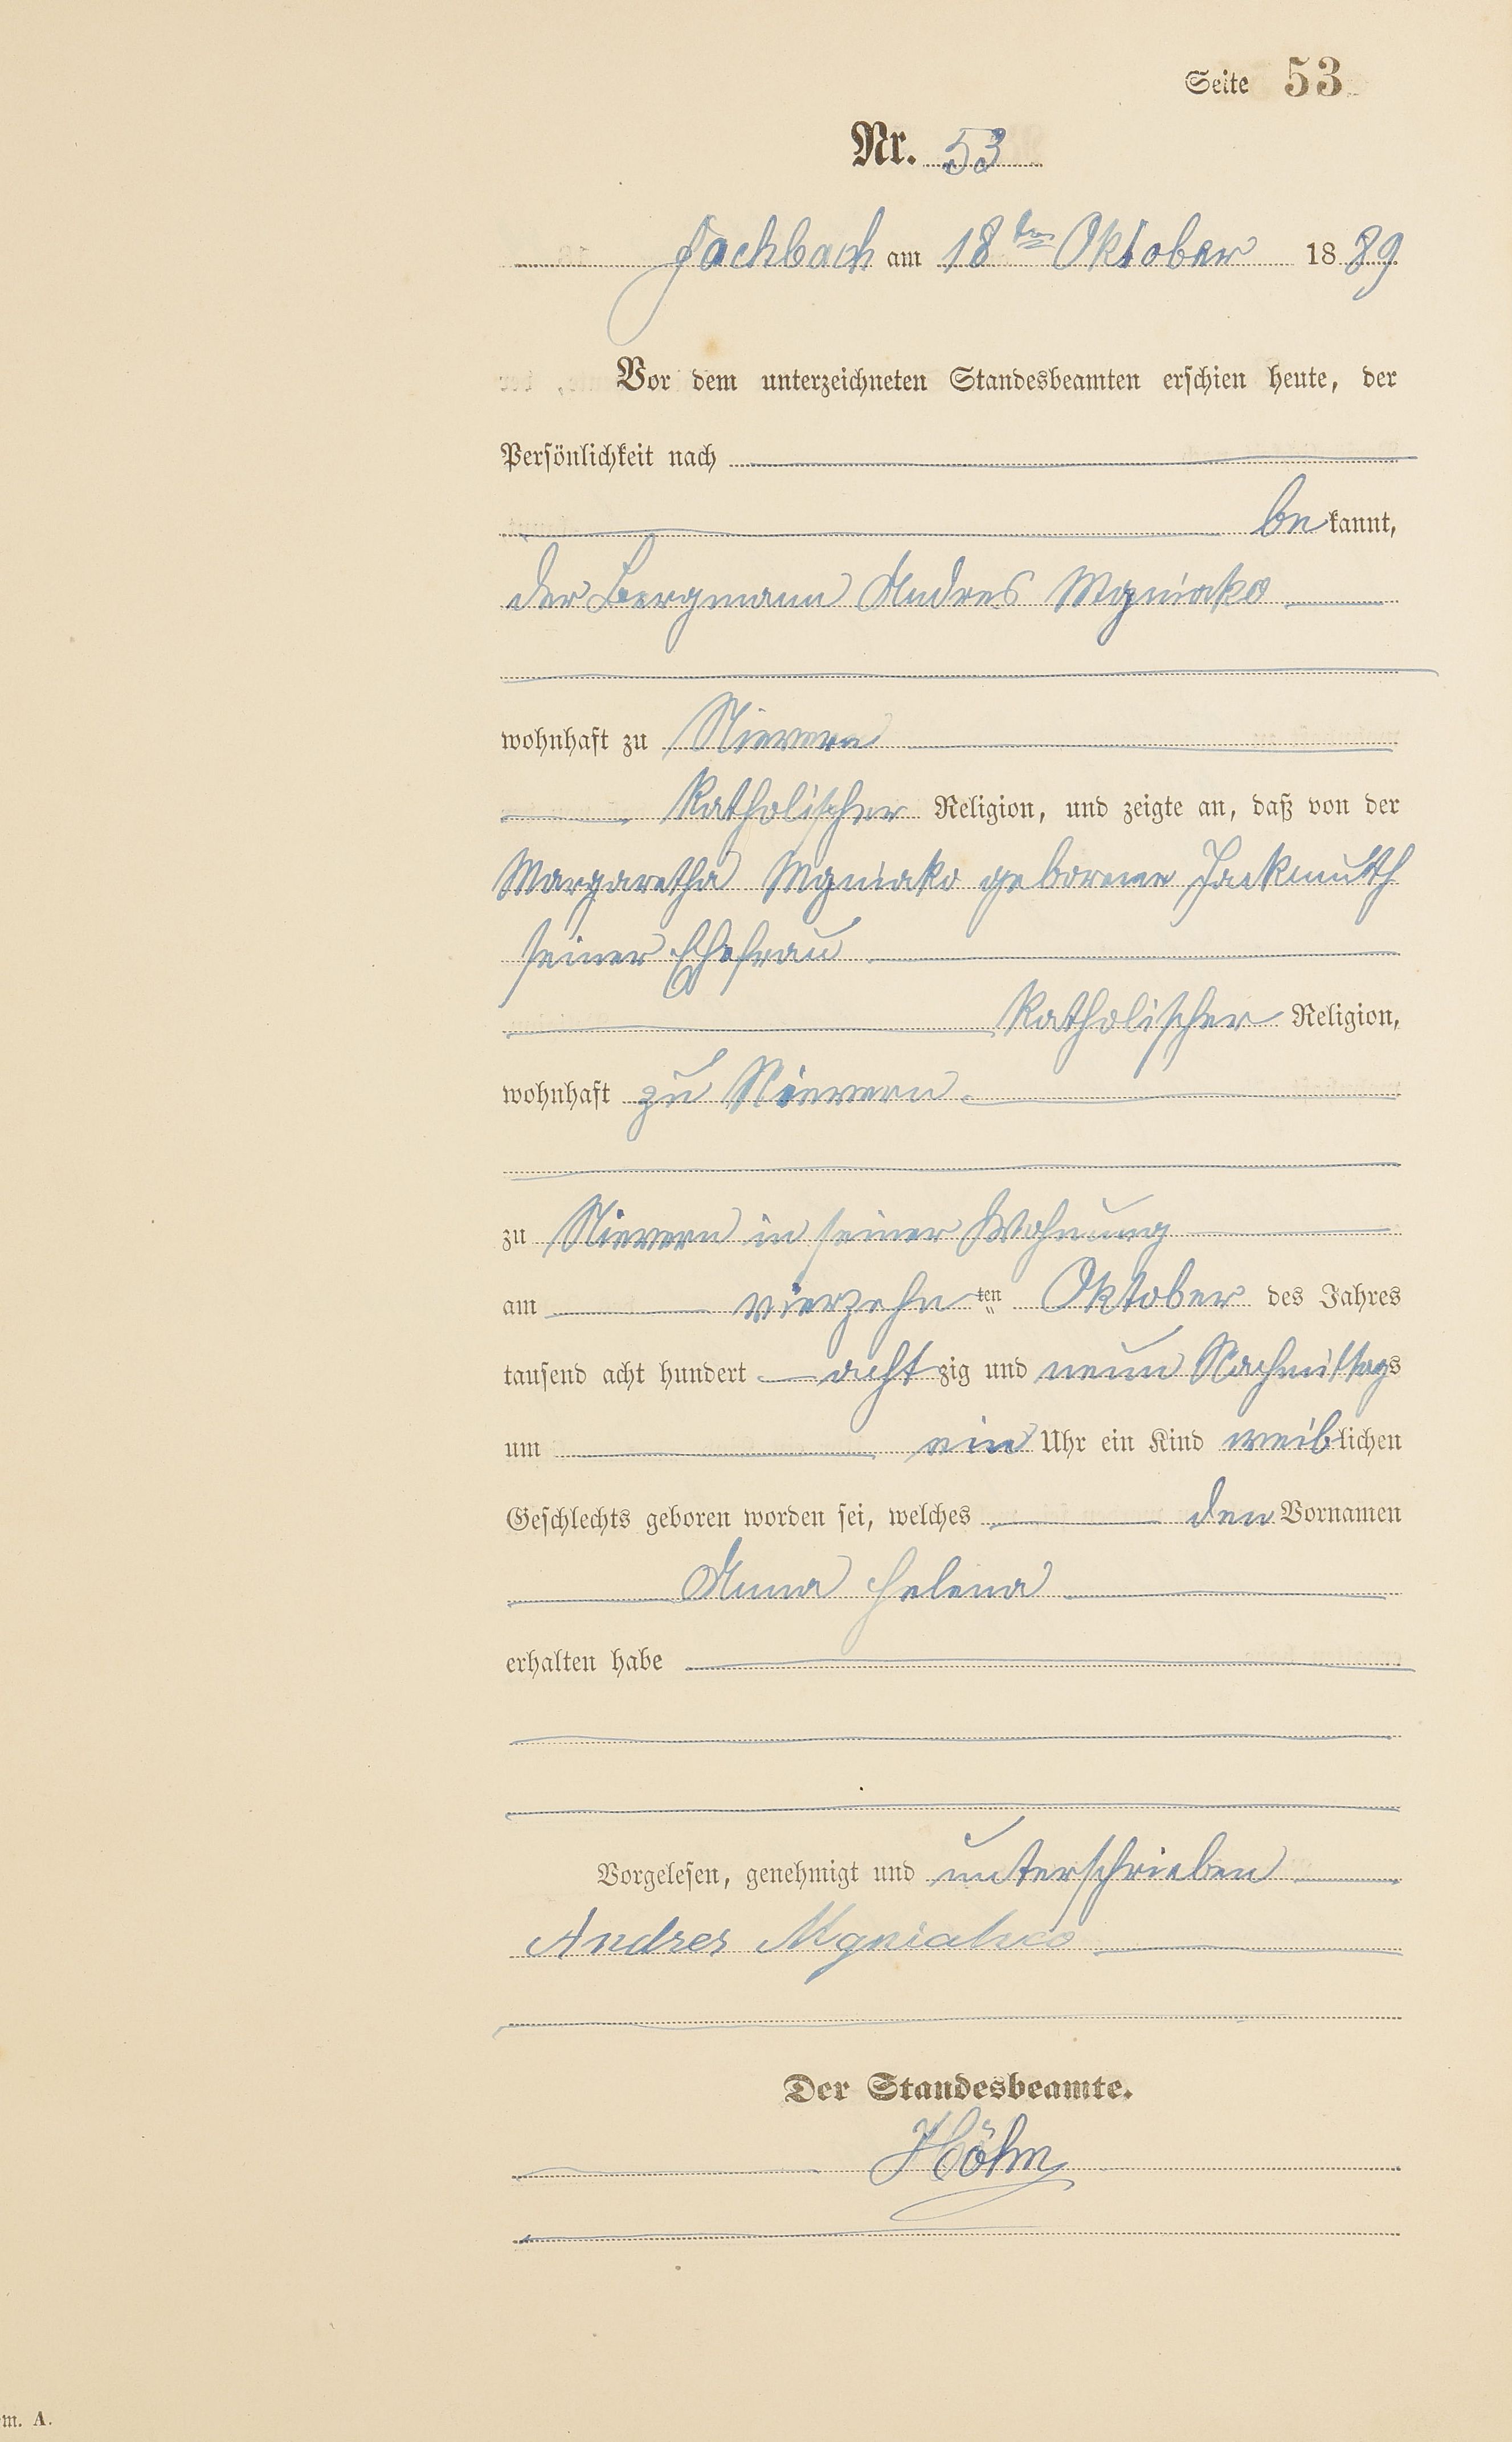 Seite 53
Nr. 53
Fachbach am 18ten Oktober 1889
Vor dem unterzeichneten Standesbeamten erschien heute, der
Persönlichkeit nach
bekannt,
der Bergmann Andres Mgniako
wohnhaft zu Nievern
katholischer Religion, und zeigte an, daß von der
Margaretha Mgniako geborene Jackmuth
seiner Ehefrau
katholischer Religion,
wohnhaft zu Nievern
zu Nievern in seiner Wohnung
am vierzehnten Oktober des Jahres
tausend acht hundert achtzig und neun Nachmittags
um ein Uhr ein Kind weiblichen
Geschlechts geboren worden sei, welches den Vornamen
Anna Helena
erhalten habe
Vorgelesen, genehmigt und unterschrieben
Andres Mgniako
Der Standesbeamte.
Höhn
m. A.